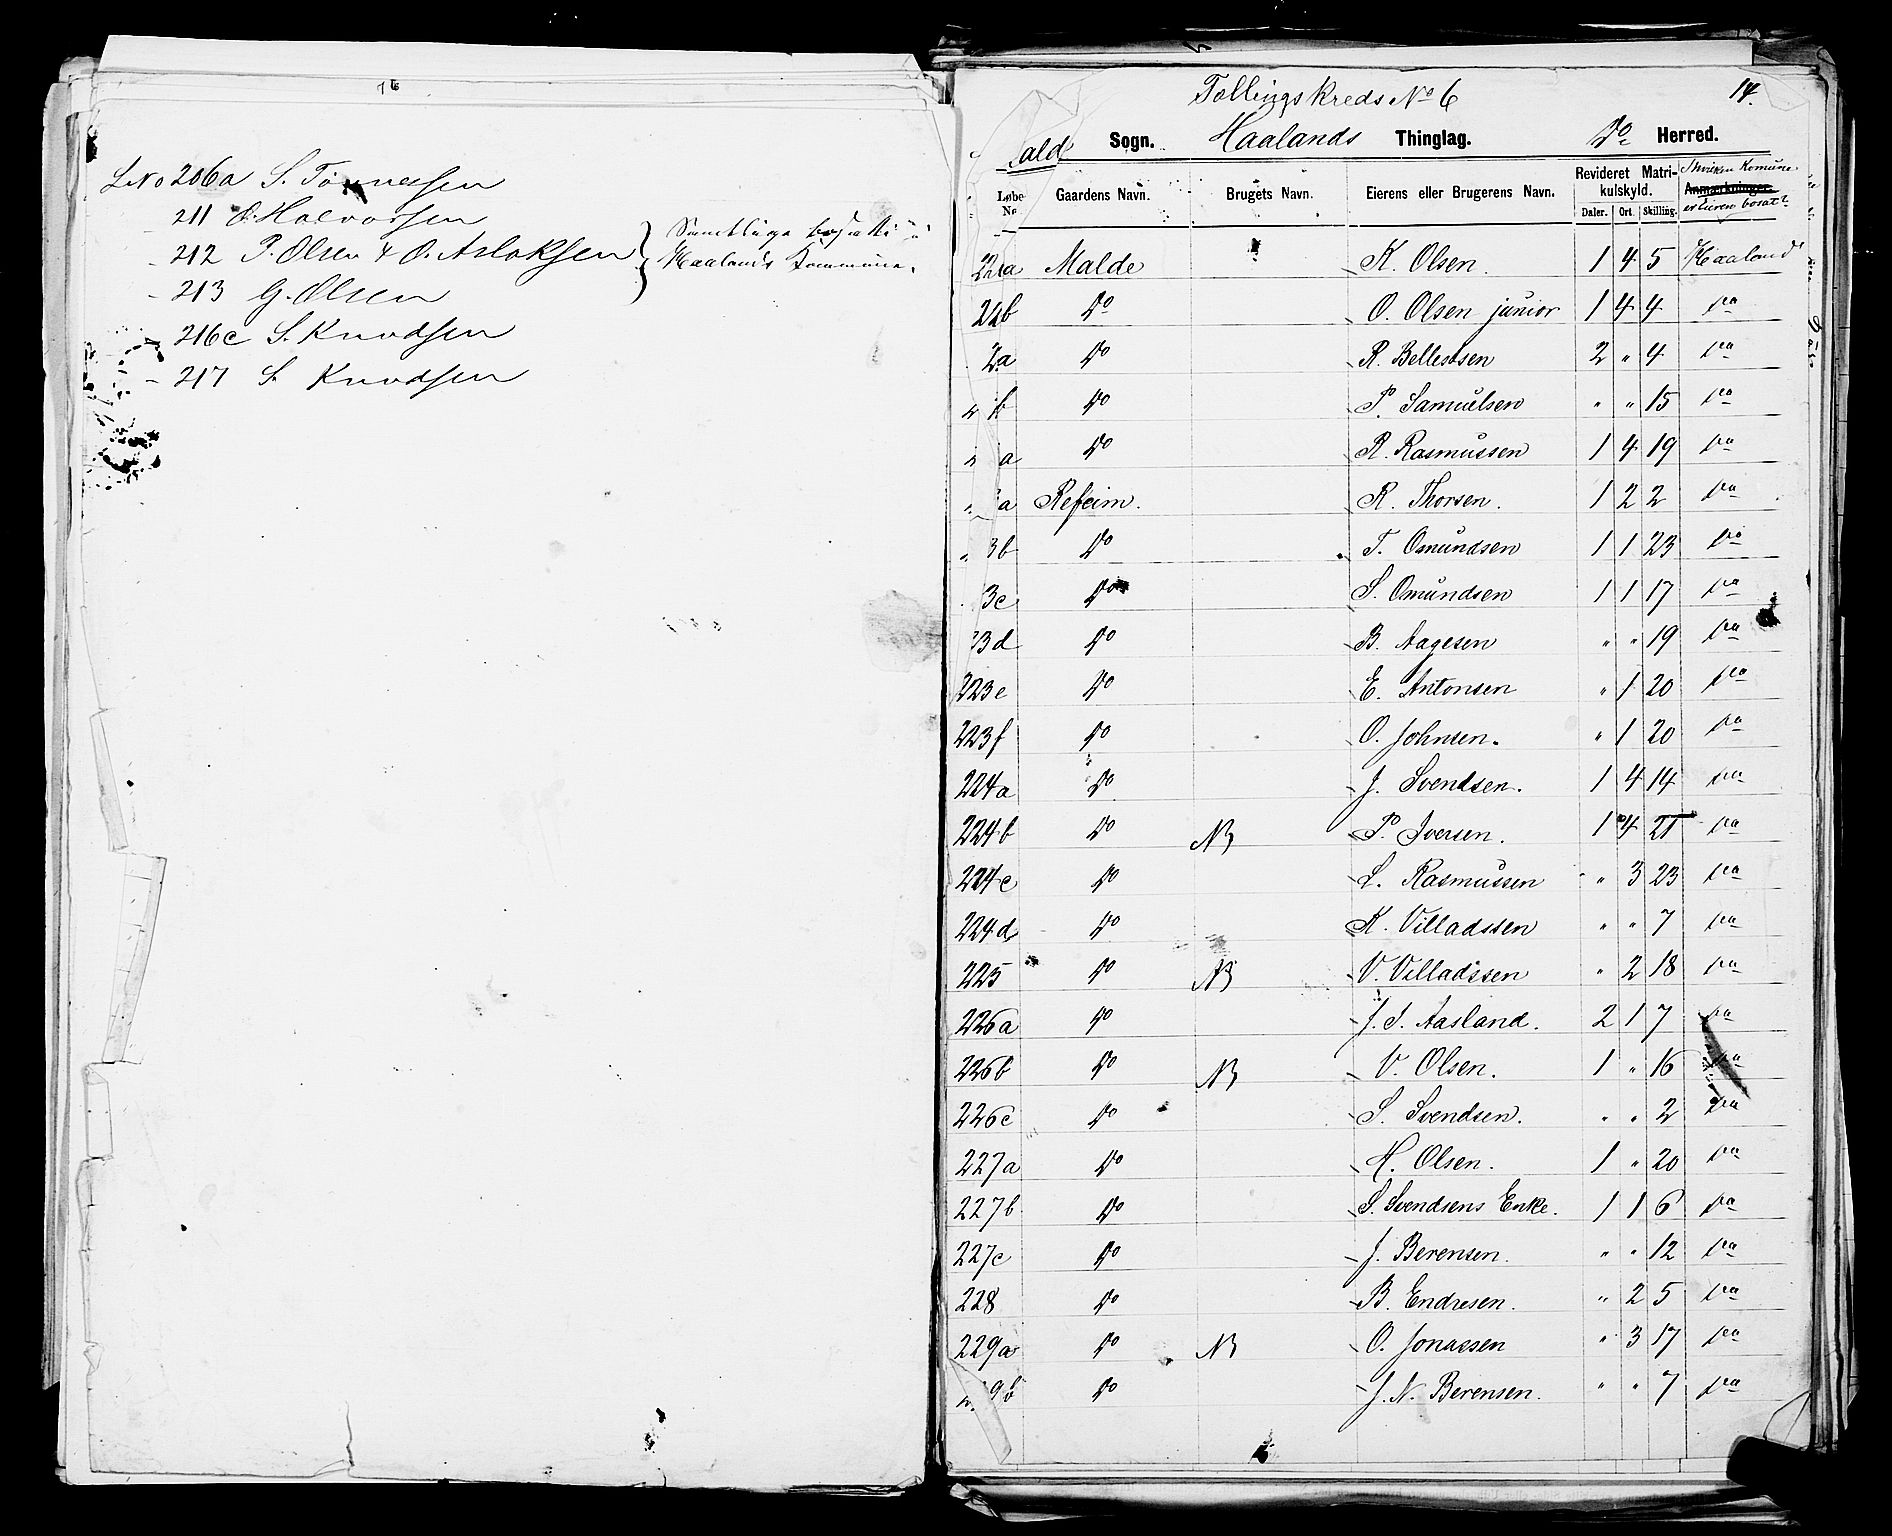 16
L No 206a S. Tönnessen
211 O. Halvorsen
- 212 P. Olsen & O. Aslaksen
- 213 G. Olsen
Samtlige bosatte i
Haalands Kommune.
- 216c S. Knudsen
- 217 S. Knudsen
Tællingskreds No 6
14.
Sogn. Haalands Thinglag. Do Herred.
Løbe No Gaardens Navn. Brugets Navn. Eierens eller Brugerens Navn. Revideret Matrikulskyld. Daler. Ort. Skilling. I hvilken Komune er Eieren bosat?
a Malde K. Olsen. 1 4 5 Haaland
b Do O. Olsen junior 1 4 4 do
2a Do R. 2 " 4 do
b Do P. Samuelsen " " 15 do
a Do R. Rasmussen 1 4 19 do
a Refeim. R. Thorsen. 1 2 2 do
3b Do T. Omundsen 1 1 23 do
3c Do S. Omundsen 1 1 17 do
3d Do B. Aagesen " " 19 do
223e Do E. Antonsen " 1 20 do
223f Do O. Johnsen. " 1 20 do
224a Do J. Svendsen. 1 4 14 do
224b Do NB P. Iversen. 1 4 21 do
224c Do L. Rasmussen " 3 23 do
224d Do K. Villadssen " " 7 do
225 Do NB V. Villadssen " 2 18 do
226a Do J. S. Aasland. 2 1 7 do
226b Do NB V. Olsen. 1 " 16 do
226c Do S. Svendsen. " " 2 do
227a Do H. Olsen. 1 " 20 do
227b Do S. Svendsens Enke. 1 1 6 do
227c Do J. Berensen. " " 12 do
228 Do B. Endresen. " 2 5 do
229a Do NB O. Jonassen " 3 17 do
9b Do J. N. Berensen. " " 7 do